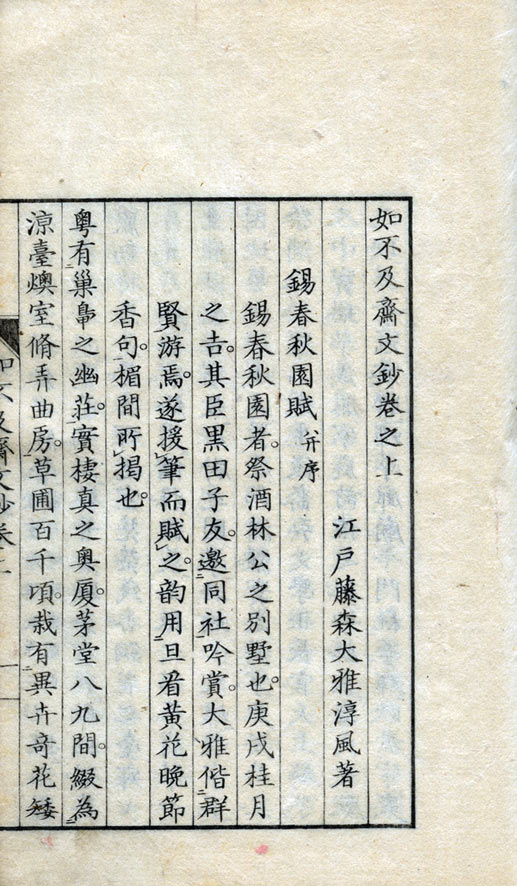 如不及齋文鈔卷之上
江戶藤森大雅淳風著
錫春秋園賦 并序
錫春秋園者。祭酒林公之別墅也。庚戌桂月
之吉。其臣黑田子友。邀同社吟賞。大雅偕群
賢游焉。遂援筆而賦之。韵用旦看黃花晚節
香句。楣間所揭也。
粵有巢鳧之幽莊。實棲真之奧厦。茅堂八九間。綴為
涼臺燠室脩弄曲房。草圃百千頃。栽有異卉奇花矮
如不及齋文鈔卷上
一